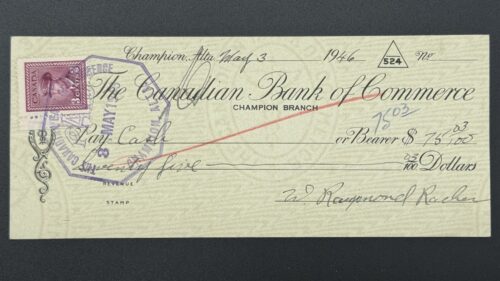 Champion, Alta May 3 1946 524 No
CANADA 3
The Canadian Bank of Commerce
CHAMPION BRANCH
75 03
Pay Cash or Bearer $ 75 03/100
Seventy five 03/100 Dollars
REVENUE
STAMP
W. Raymond
MAY